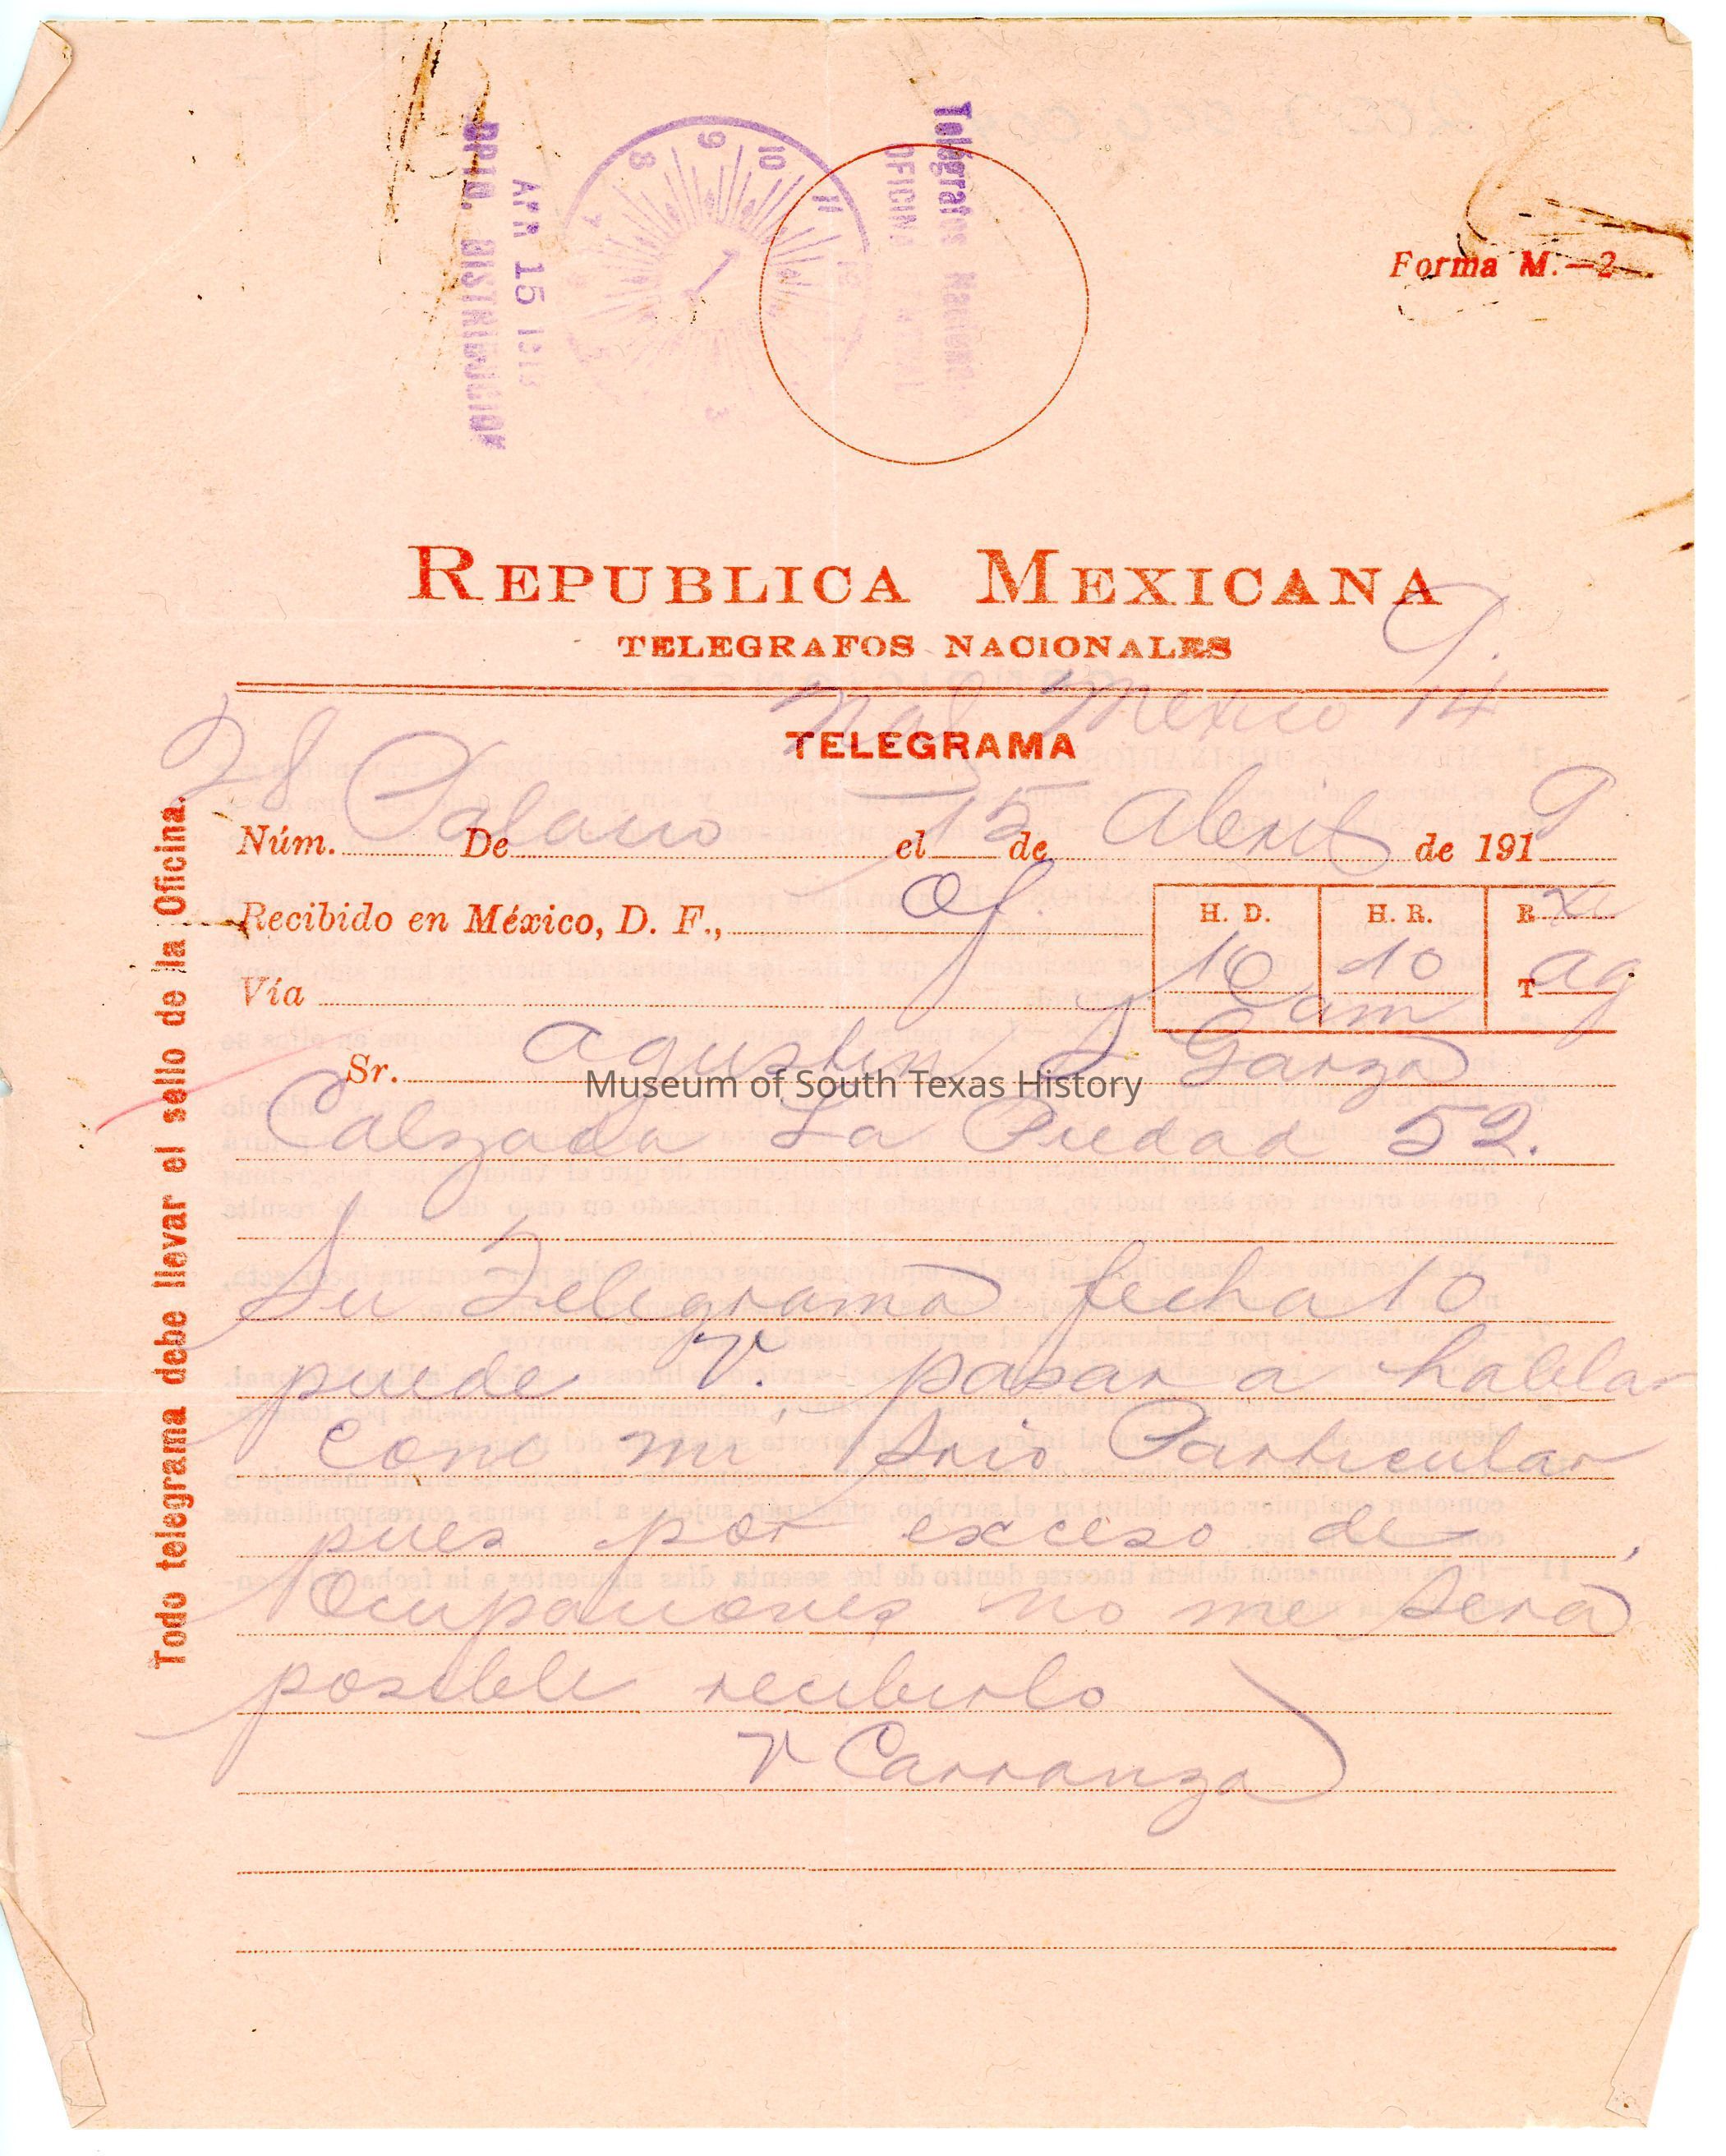 Telégrafos Nacionales
OFICINA
8 9 10 11 12
3
APR 15 191
DPTO. DISTRIBUCION
Forma M.—2
REPUBLICA MEXICANA
TELEGRAFOS NACIONALES
G.
Nal Mexico 14
TELEGRAMA
Núm. 28 De Palacio el 15 de Abril de 1919
Recibido en México, D. F., Of.
H. D. H. R. R
10 10 T ag
Vía
am
Sr. Agustin S Garza
Calzada La Piedad 52.
Museum of South Texas History
Su Telegrama fecha 10
puede V. pasar a hablar
con mi Srio Particular
pues por exceso de
Ocupaciones no me sera
posible recibirlo
V Carranza
Todo telegrama debe llevar el sello de la Oficina.